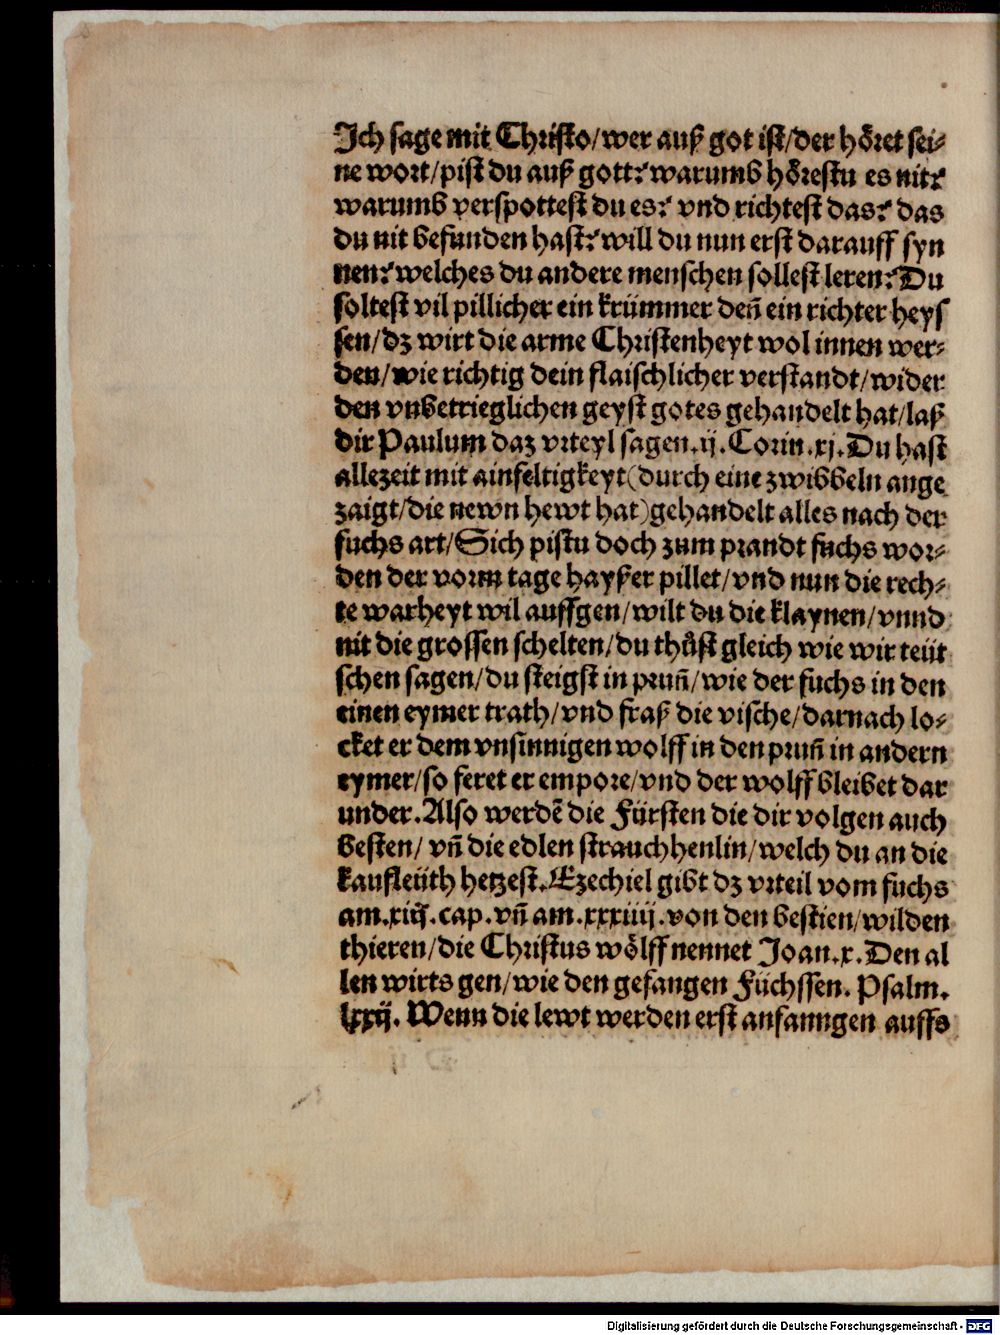 Ich sage mit Christo/wer auß got ist/der hoͤret sei⸗
ne wort/pist du auß gott? warumb hoͤrestu es nit?
warumb verspottest du es? vnd richtest das? das
du nit befunden hast? will du nun erst darauff syn
nen? welches du andere menschen sollest leren? Du
soltest vil pillicher ein krümmer deñ ein richter heys
sen/dz wirt die arme Christenheyt wol innen wer⸗
den/wie richtig dein flaischlicher verstandt/wider
den vnbetrieglichen geyst gotes gehandelt hat/laß
dir Paulum daz vrteyl sagen.ij.Corin.xj.Du hast
allezeit mit ainfeltigkeyt(durch eine zwibbeln ange
zaigt/die newn hewt hat)gehandelt alles nach der
fuchs art/Sich pistu doch zum prandt fuchs wor⸗
den der vorm tage hayßer pillet/vnd nun die rech⸗
te warheyt wil auffgen/wilt du die klaynen/vnnd
nit die grossen schelten/du thuͦst gleich wie wir teüt
schen sagen/du steigst in pruñ/wie der fuchs in den
einen eymer trath/vnd fraß die vische/darnach lo⸗
cket er dem vnsinnigen wolff in den pruñ in andern
eymer/so feret er empore/vnd der wolff bleibet dar
under.Also werdẽ die Fürsten die dir volgen auch
besten/ vñ die edlen strauchhenlin/welch du an die
kaufleüth hetzest.Ezechiel gibt dz vrteil vom fuchs
am.xiij.cap.vñ am.xxxiiij.von den bestien/wilden
thieren/die Christus woͤlff nennet Joan.x.Den al
len wirts gen/wie den gefangen Füchssen. Psalm.
lxxij. Wenn die lewt werden erst anfanngen auffs
Digitalisierung gefördert durch die Deutsche Forschungsgemeinschaft - DFG